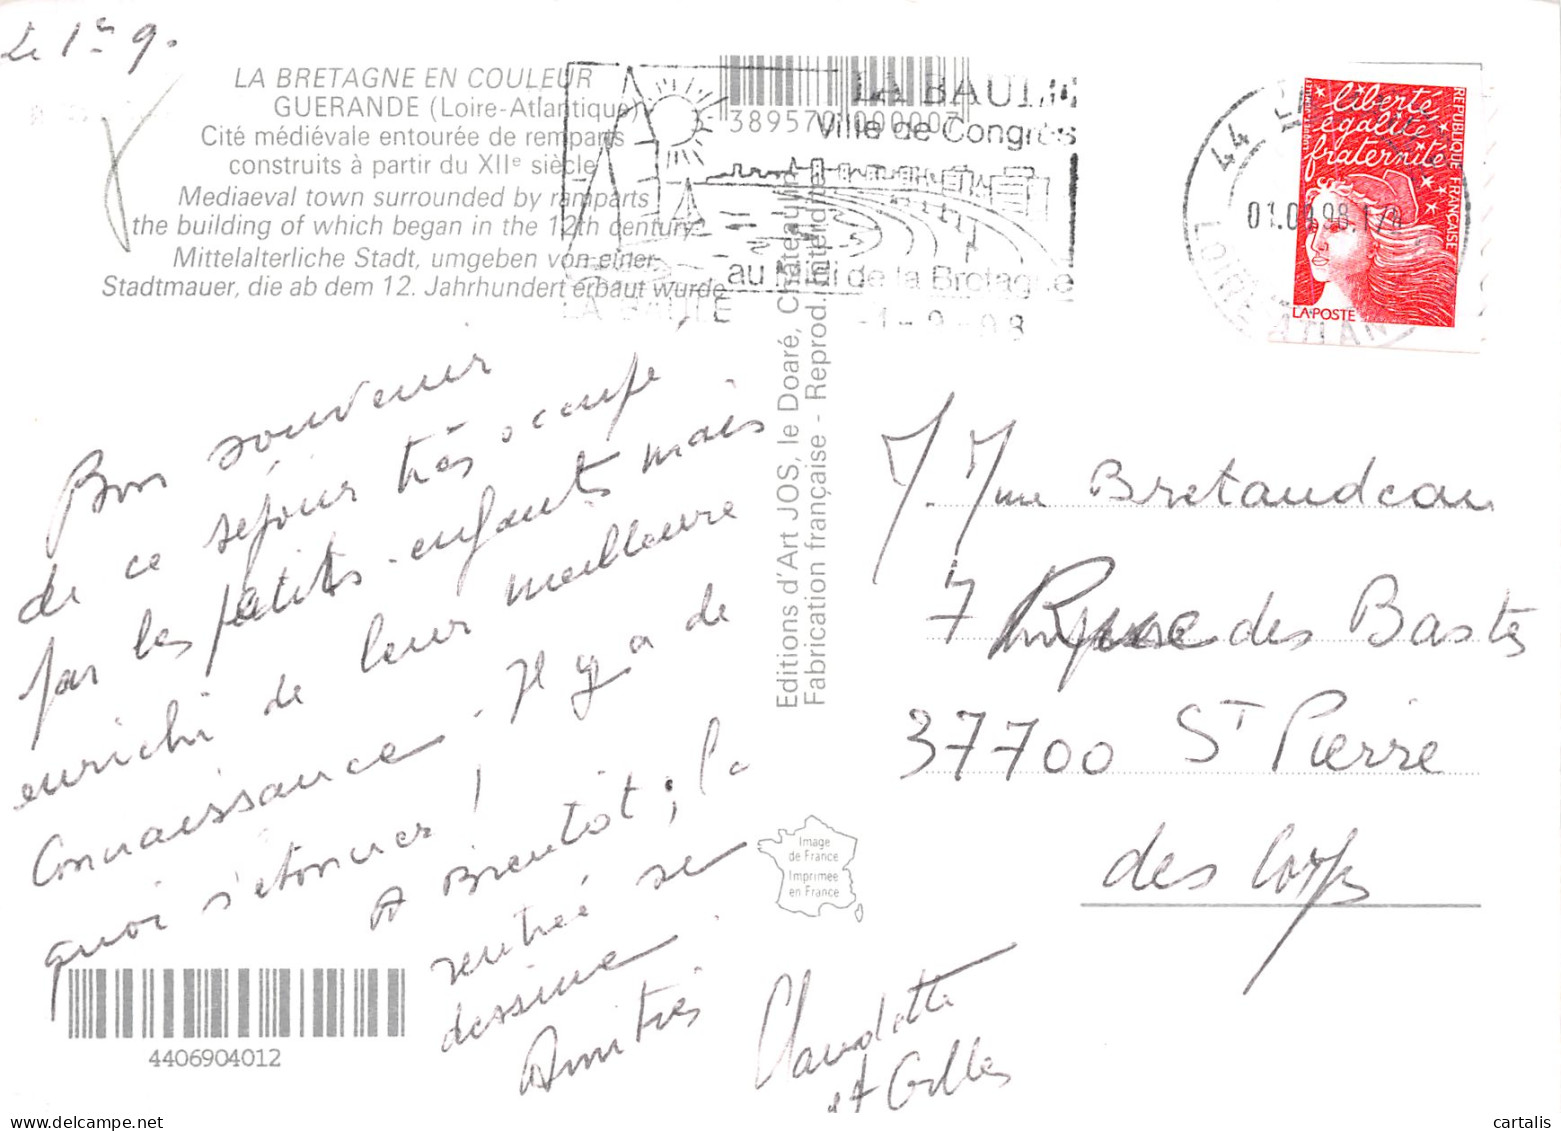 Le 1er 9.
LA BRETAGNE EN COULEUR
GUERANDE (Loire-Atlantique)
Cité médiévale entourée de remparts
construits à partir du XIIe siècle
Mediaeval town surrounded by ramparts
the building of which began in the 12th century
Mittelalterliche Stadt, umgeben von einer
Stadtmauer, die ab dem 12. Jahrhundert erbaut wurde
LA BAULE
Ville de Congrès
au Midi de la Bretagne
LA BAULE
-1-9-98
44
LOIRE ATLAN
liberté
égalité
fraternité
REPUBLIQUE FRANÇAISE
LA POSTE
Bon souvenir
de ce séjour très occupé
par les petits-enfants mais
enrichi de leur meilleure
connaissance. Il y a de
quoi s'étonner !
A Bientôt ; la
rentrée se
dessine.
Amitiés
Claudette
et Gilles
Editions d'Art JOS, le Doaré, Châteaulin
Fabrication française - Reprod. interdite
M. Mme Bretaudeau
7 Rue des Bastes
37700 St Pierre
des Corps
Image
de France
Imprimée
en France
4406904012
cartalis